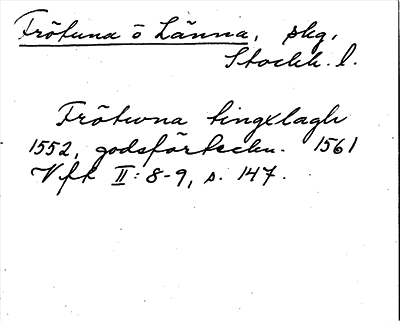 Frötuna o Länna, skg,
Stockh. l.
Frötuna tingxlagh
1552, godsförteckn. 1561
Vft II: 8-9, s. 147.